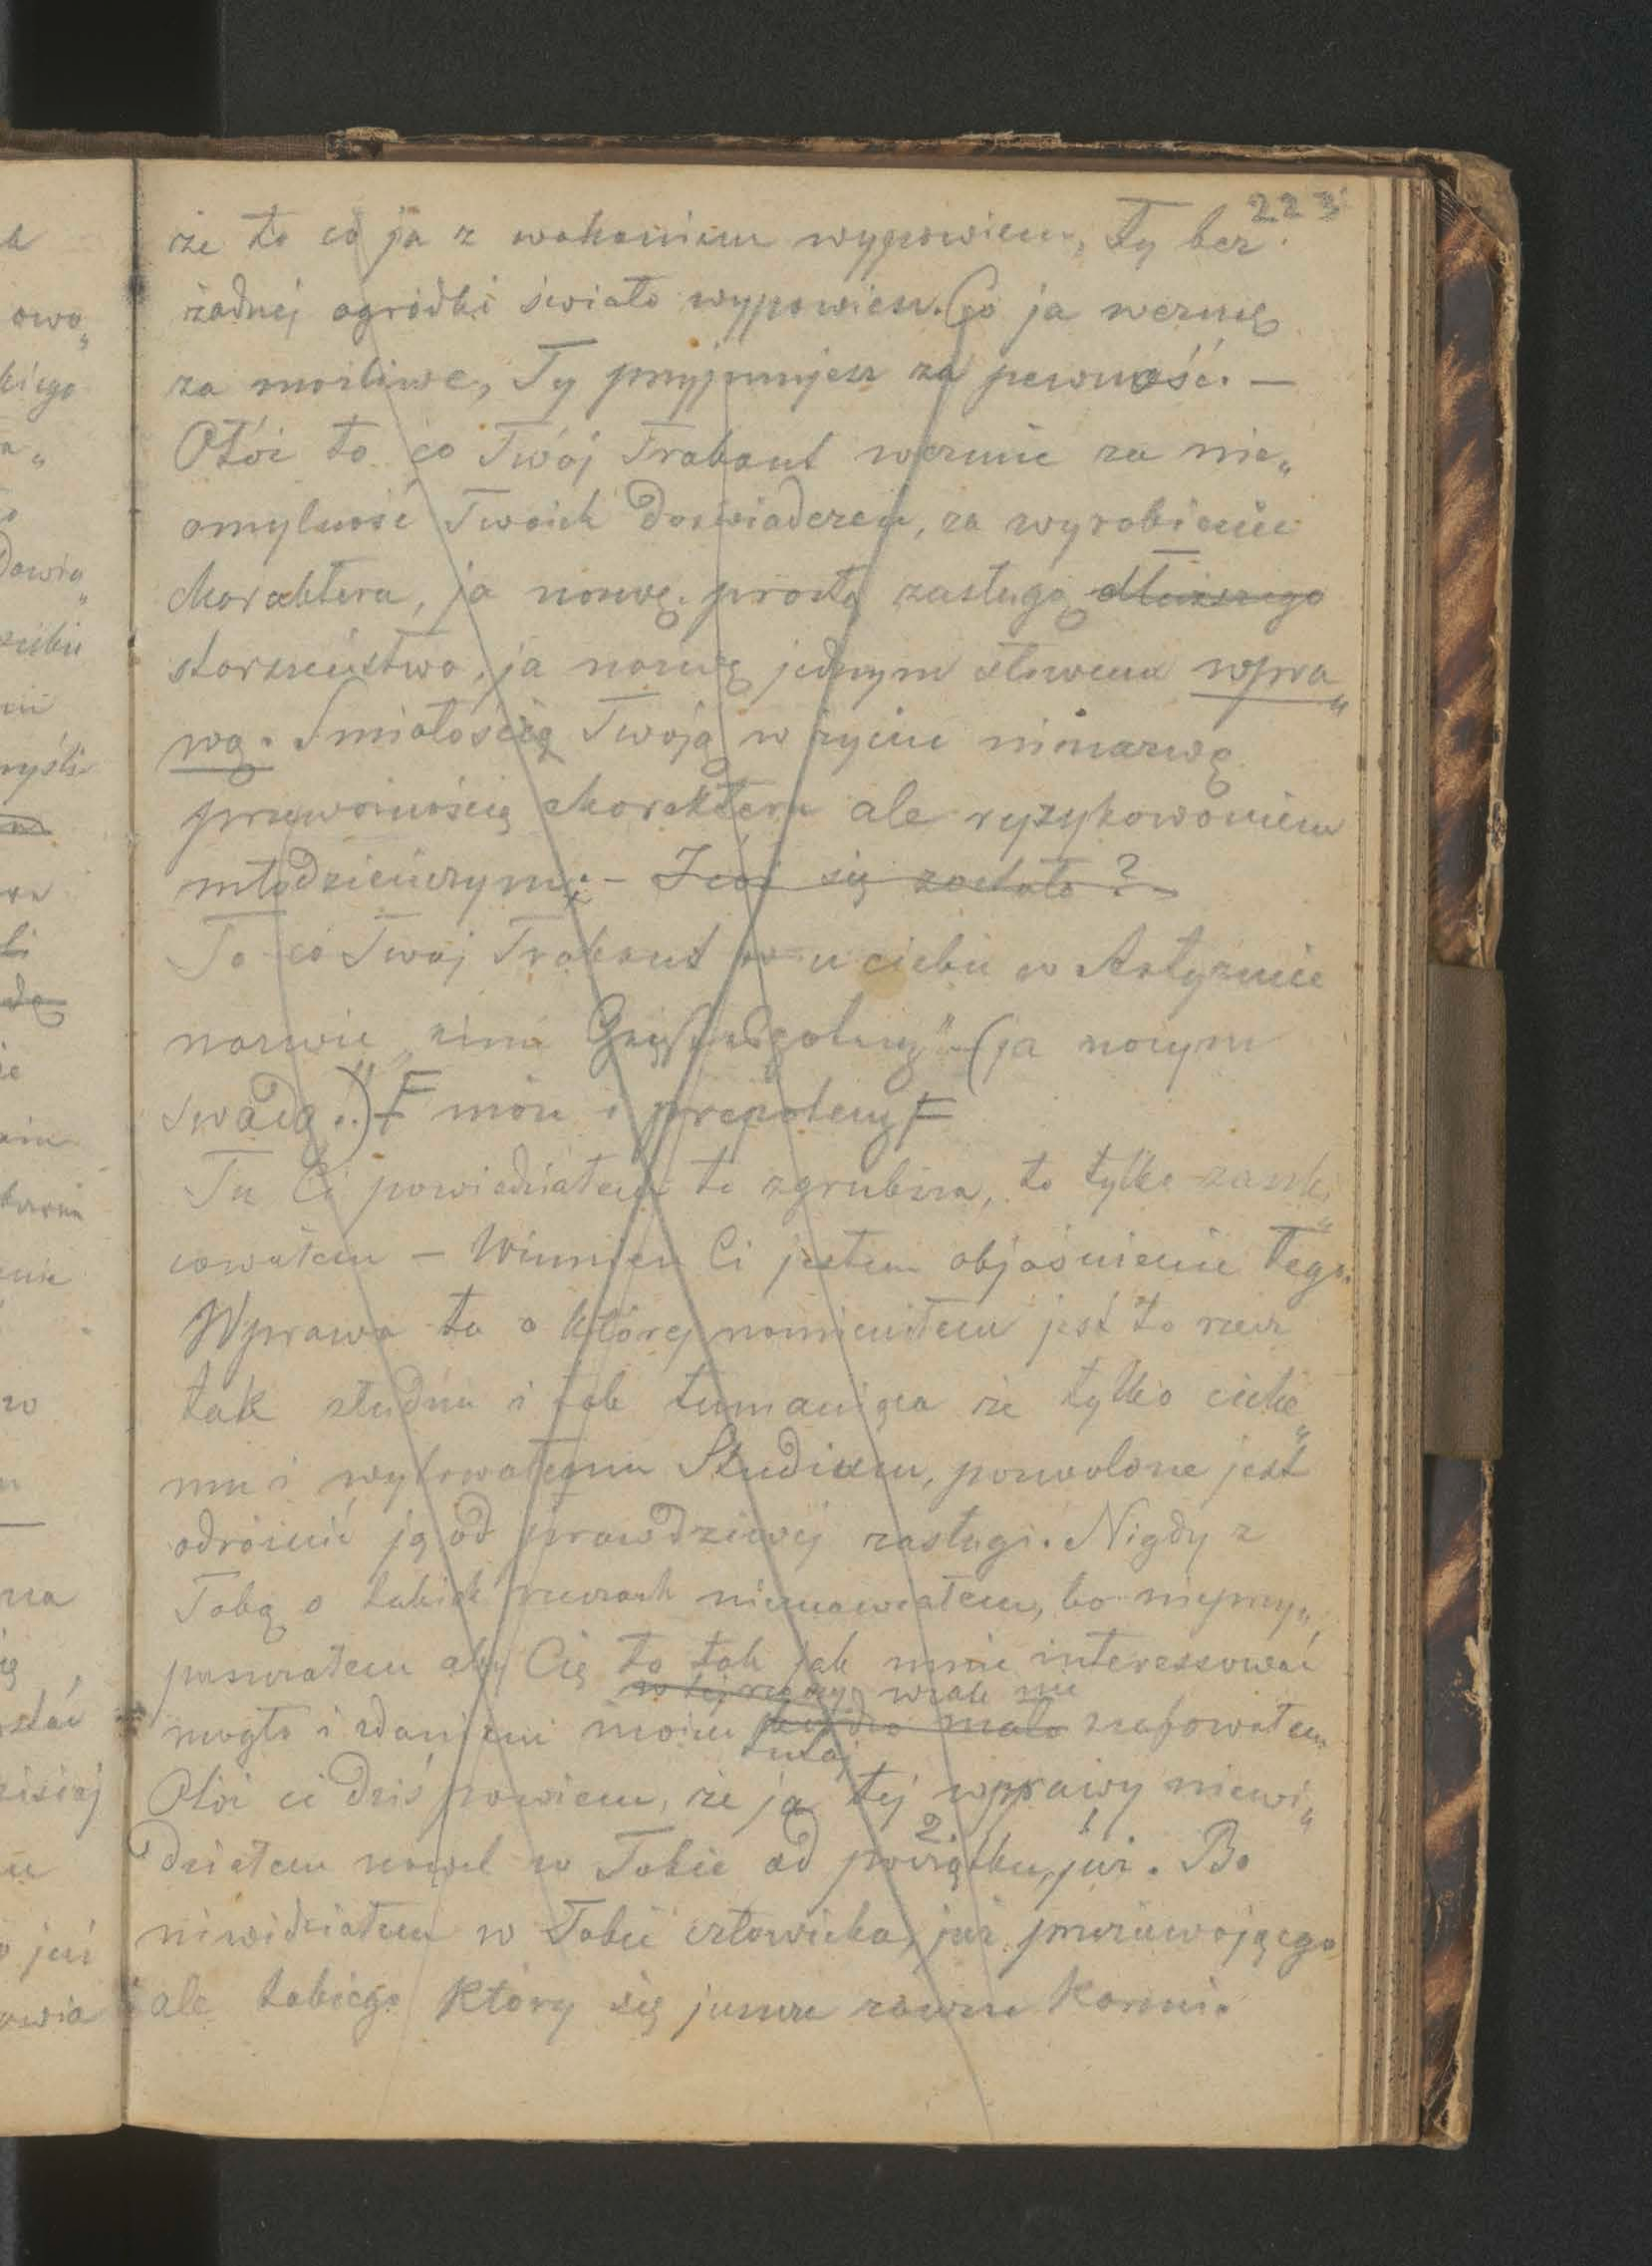 223
że to co ja z wahaniem wypowiem, Ty bez
żadnej ogródki śmiało wypowiesz. Co ja wezmę
za możliwe, Ty przyjmujesz za pewność. —
Otóż to co Twój Trabant weźmie za nie„
omylność Twoich doświadczeń, za wyrobienie
charaktera, ja nazwę prostą zasługą dłuższego
starszeństwa, ja nazwę jednym słowem wpra„
wą. Śmiałością Twoją w życiu nienazwę
przeważnością charakteru ale ryzykowaniem
młodzieńczym; – I cóż się zostało?
To co Twój Trabant u ciebie w Artyzmie
nazwie „ (ja nazwę
swadą.") F może i prepotencyą F
Tu Ci powiedziałem to zgrubsza, to tylko szki„
cowałem — Winien Ci jestem objaśnienie tego.
Wprawa ta o której namieniłem jest to rzecz
tak złudna i tak tumaniąca że tylko cichе„
mu i wytrwałemu Studium, pozwolone jest
odróżnić ją od prawdziwej zasługi. Nigdy z
Tobą o takich rzeczach niemawiałem, bo nieprzy„
puszczałem aby Cię to tak jak mnie interessować
w tej rzeczy wcale nie
mogło i zdaniem moim mało szafowałem
tutaj
Otóż ci dziś powiem, że ja tej wprawy niewi„
2. 1
działem nawet w Tobie od początku, już. Bo
niewidziałem w Tobie człowieka, już przeżuwającego
ale takiego który się jeszcze zawsze karmi.